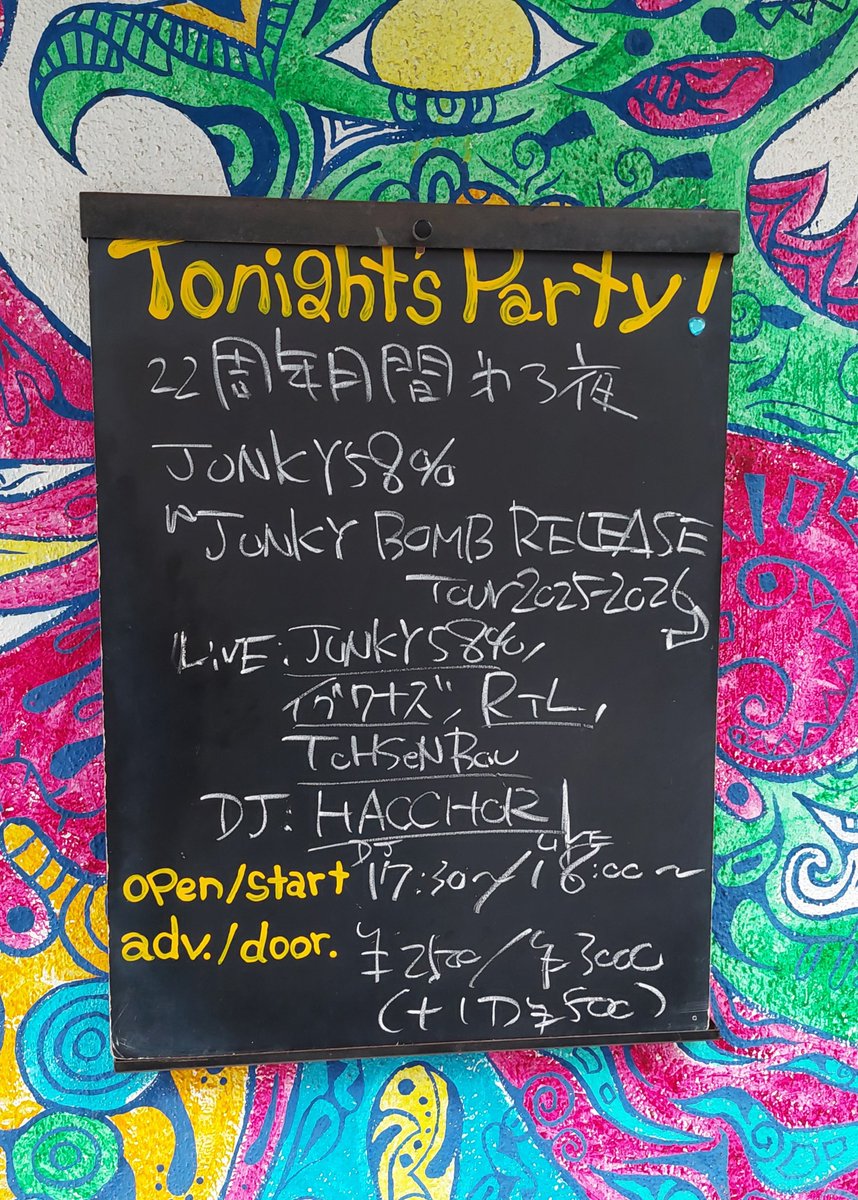 Tonight's Party!
22周年月間 わる夜
JUNKY58%
"JUNKY BOMB RELEASE
Tour 2025-2026"
LiVE: JUNKY58%,
イヴワナズ, RTL,
ToHSeNBou
DJ: HACCHOR!
DJ LIVE
open/start 17:30~/18:00~
adv./door. ¥2500/¥3000
(+1D¥500)